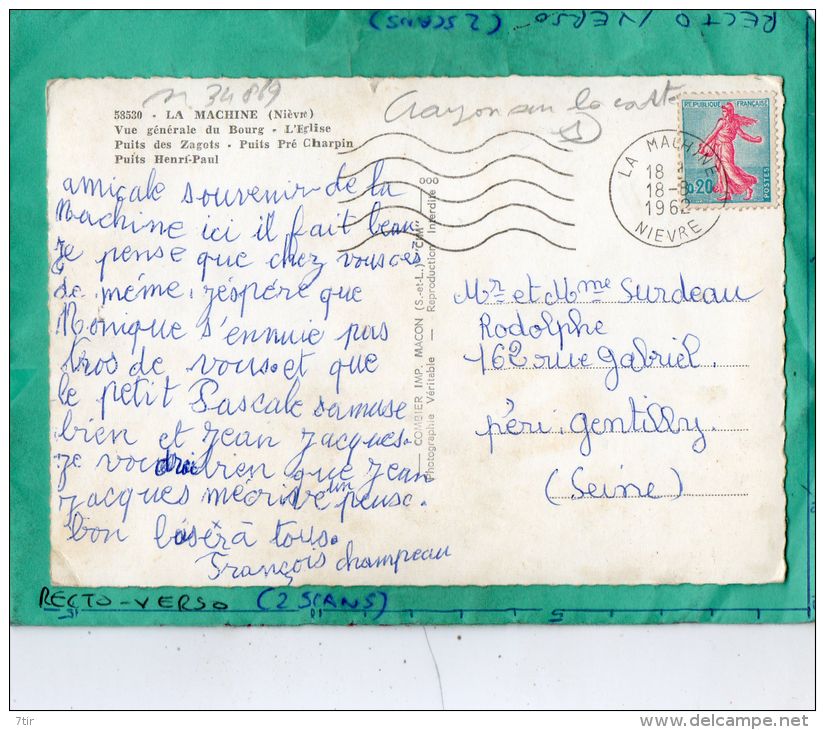 RECTO / VERSO (2 SCANS)
n. 34 869
Crayon sur la carte
58530 - LA MACHINE (Nièvre)
Vue générale du Bourg - L'Eglise
Puits des Zagots - Puits Pré Charpin
Puits Henri-Paul
REPUBLIQUE FRANÇAISE
0,20
POSTES
LA MACHINE
18
18-8
1962
NIEVRE
amicale souvenir de la
Machine ici il fait beau
Je pense que chez vous ces
de même. J'éspére que
Monique s'ennuie pas
tros de vous. et que
le petit Pascale s'amuse
bien et Jean Jacques.
Je voudrai bien que Jean
Jacques mécrive un peuse.
bon à tous.
François Champeau
COMBIER IMP. MACON (S.-et-L.) "CIM"
Photographie Véritable — Reproduction Interdite
Mr et Mme Surdeau
Rodolphe
162 rue Gabriel.
péri. Gentilly.
(Seine)
RECTO-VERSO (2 SCANS)
7tir
delcampe.net